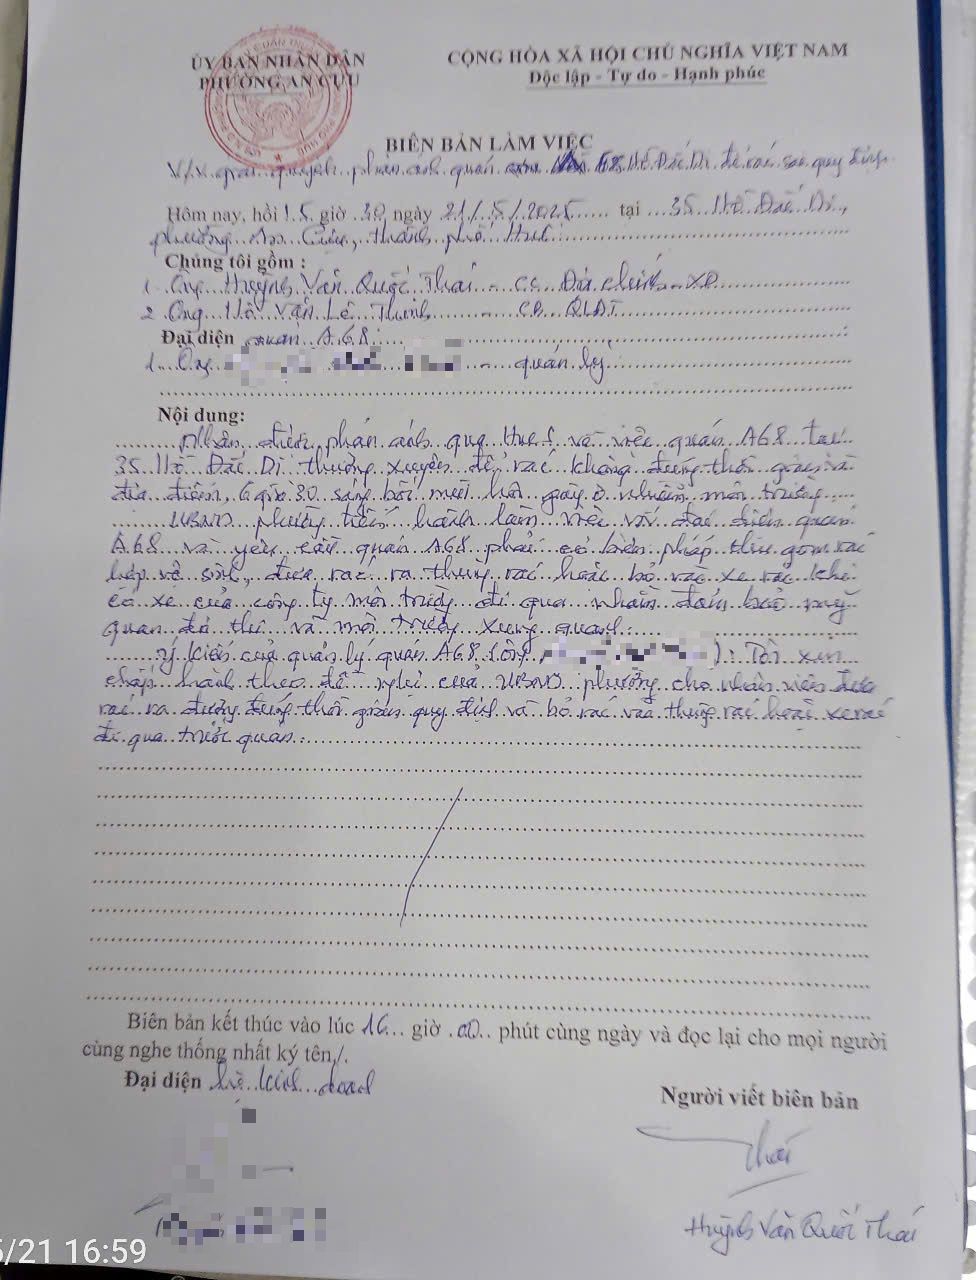 ỦY BAN NHÂN DÂN
PHƯỜNG AN CỰU
CỘNG HÒA XÃ HỘI CHỦ NGHĨA VIỆT NAM
Độc lập - Tự do - Hạnh phúc
BIÊN BẢN LÀM VIỆC
V/v giải quyết phản ánh quán 68 Hồ Đắc Di để rác sai quy định
Hôm nay, hồi 15 giờ 30 ngày 21/5/2025 tại 35 Hồ Đắc Di,
phường An Cựu, thành phố Huế
Chúng tôi gồm :
1. Ông Huỳnh Văn Quốc Thái - CC Địa chính - XD
2. Ông Hồ Văn Lê Thịnh - CB QLĐT
Đại diện quán A68:
1. Ông - quản lý
Nội dung:
Nhận được phản ánh qua Hue S về việc quán A68 tại
35 Hồ Đắc Di thường xuyên để rác không đúng thời gian và
địa điểm, 6 giờ 30 sáng bốc mùi hôi gây ô nhiễm môi trường.
UBND phường tiến hành làm việc với đại diện quán
A68 và yêu cầu quán A68 phải có biện pháp thu gom rác
hợp vệ sinh, đưa rác ra thùng rác hoặc bỏ vào xe rác khi
có xe của công ty môi trường đi qua nhằm đảm bảo mỹ
quan đô thị và môi trường xung quanh.
Ý kiến của quản lý quán A68 (ông ): Tôi xin
chấp hành theo đề nghị của UBND phường cho nhân viên đưa
rác ra đường đúng thời gian quy định và bỏ rác vào thùng rác hoặc xe rác
đi qua trước quán.
Biên bản kết thúc vào lúc 16 giờ 00 phút cùng ngày và đọc lại cho mọi người
cùng nghe thống nhất ký tên./.
Đại diện hộ kinh doanh
Người viết biên bản
Thái
Huỳnh Văn Quốc Thái
5/21 16:59